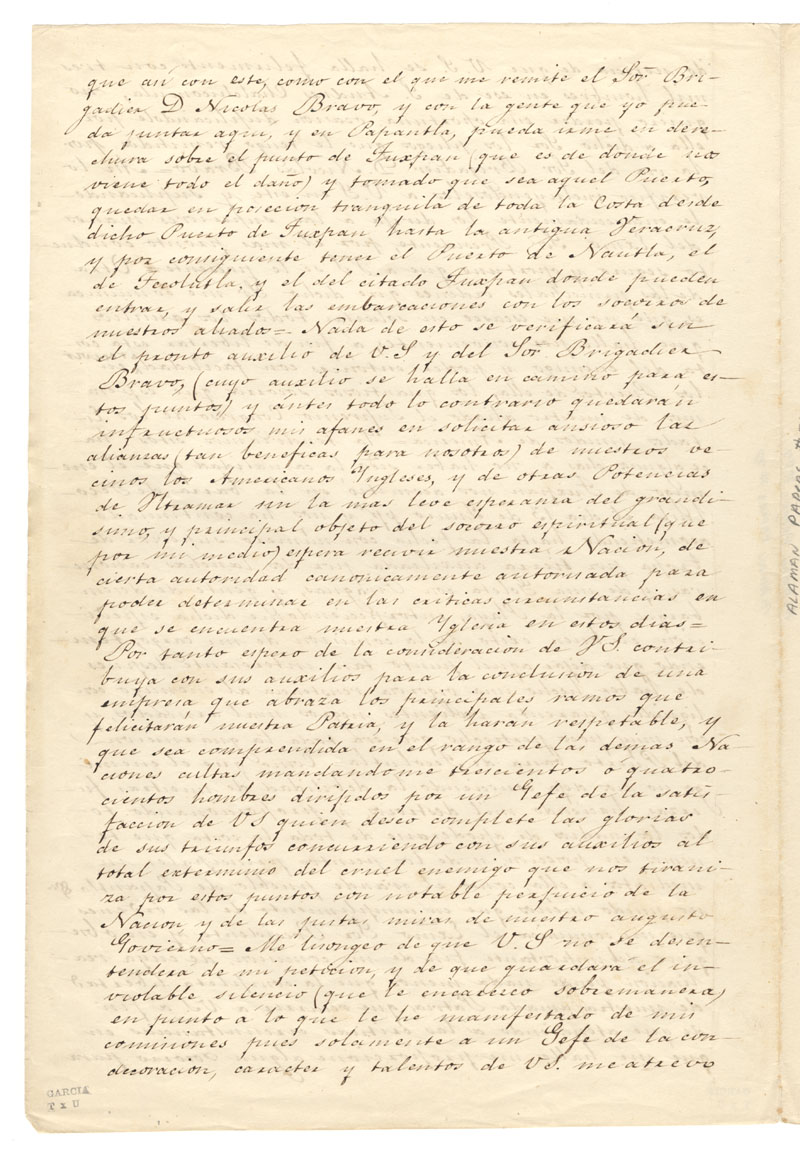 que así con este, como con el que me remite el Sor̃ Bri-
gadier D Nicolas Bravo, y con la gente que yo pue-
da juntar aquí, y en Papantla, pueda irme en dere-
chura sobre el punto de Tuxpan (que es de donde nos
viene todo el daño) y tomado que sea aquel Puerto,
quedar en posecion tranquila de toda la Costa desde
dicho Puerto de Tuxpan hasta la antigua Veracruz,
y por consiguiente tener el Puerto de Nautla, el
de Tecolutla, y el del citado Tuxpan donde pueden
entrar, y salir las embarcaciones con los socorros de
nuestros aliados = Nada de esto se verificará sin
el pronto auxilio de V.S y del Sor̃ Brigadier
Bravo, (cuyo auxilio se halla en camino para es-
tos puntos) y ántes todo lo contrario quedarán
infructuosos mis afanes en solicitar ansioso las
alianzas (tan beneficas para nosotros) de nuestros ve-
cinos los Americanos Yngleses, y de otras Potencias
de Ultramar sin la mas leve esperanza del grandi-
simo, y principal objeto del socorro espiritual (que
por mi medio) espera recivir nuestra Nacion, de
cierta autoridad canonicamente autorisada para
poder determinar en las criticas circunstancias en
que se encuentra nuestra Yglesia en estos dias =
Por tanto espero de la consideracion de V S. contri-
buya con sus auxilios para la conclusion de una
empresa que abraza los principales ramos que
felicitarán nuestra Patria, y la harán respetable, y
que sea comprendida en el rango de las demas Na-
ciones cultas mandandome trescientos ó quatro-
cientos hombres dirijidos por un Gefe de la satis-
faccion de VS quien deseo complete las glorias
de sus triunfos concurriendo con sus auxilios al
total exterminio del cruel enemigo que nos tirani-
za por estos puntos con notable perjuicio de la
Nacion y de las justas miras de nuestro augusto
Govierno = Me lisongeo de que V.S no se desen-
tendera de mi peticion, y de que guardará el in-
violable silencio (que le encaresco sobremanera)
en punto á lo que le he manifestado de mis
comiciones pues solamente a un Gefe de la con-
decoracion, caracter y talentos de VS. me atrevo
GARCIA
T x U
ALAMAN PAPERS